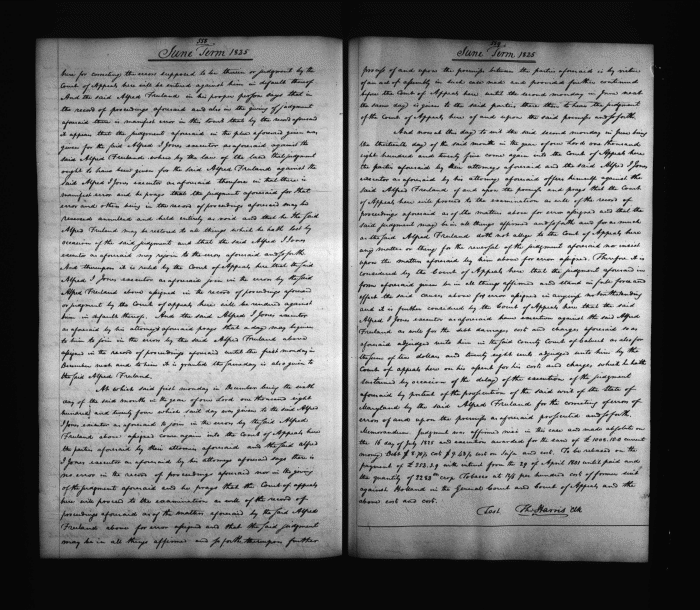 358
June Term 1825
here for correcting the error supposed to be therein or judgment by the
Court of Appeals here will be entered against him in default thereof.
And the said Alfred Freeland in his proper person says that in
the record of proceedings aforesaid and also in the giving of judgment
aforesaid there is manifest error in this to wit that by the record aforesaid
it appears that the judgment aforesaid in the plea aforesaid given was
given for the said Alfred I Jones executor as aforesaid against the
said Alfred Freeland where by the law of the land that judgment
ought to have been given for the said Alfred Freeland against the
said Alfred I Jones executor as aforesaid therefore in that there is
manifest error and he prays that the judgment aforesaid for that
error and others being in the record of proceedings aforesaid may be
reversed annulled and held entirely as void and that he the said
Alfred Freeland may be restored to all things which he hath lost by
occasion of the said judgment and that the said Alfred I Jones
executor as aforesaid may rejoin to the error aforesaid and so forth
And thereupon it is ruled by the Court of Appeals here that the said
Alfred I Jones executor as aforesaid join in the error by the said
Alfred Freeland above assigned in the record of proceedings aforesaid
or judgment by the Court of appeals here will be rendered against
him in default thereof. And the said Alfred I Jones executor
as aforesaid by his attorney aforesaid prays that a day may be given
to him to join in the error by the said Alfred Freeland above
assigned in the record of proceedings aforesaid until the first monday in
December next and to him it is granted the same day is also given to
the said Alfred Freeland.
At which said first monday in December being the sixth
day of the said month in the year of our Lord one thousand eight
hundred and twenty four which said day was given to the said Alfred
I Jones executor as aforesaid to join in the error by the said Alfred
Freeland above assigned come again into the Court of Appeals here
the parties aforesaid by their attornies aforesaid and the said Alfred
I Jones executor as aforesaid by his attorney aforesaid says there is
no error in the record of proceedings aforesaid nor in the giving
of the judgment aforesaid and he prays that the Court of appeals
here will proceed to the examination as well of the record of
proceedings aforesaid as of the matters aforesaid by the said Alfred
Freeland above for error assigned and that the said judgment
may be in all things affirmed and so forth thereupon further
June Term 1825
process of and upon the premises between the parties aforesaid is by virtue
of an act of assembly in such case made and provided further continued
before the Court of Appeals here until the second monday in June next
the same day is given to the said parties there then to hear the judgment
of the Court of Appeals here of and upon the said premises and so forth.
And now at this day to wit the said second monday in June being
the thirteenth day of the said month in the year of our Lord one thousand
eight hundred and twenty five come again into the Court of Appeals here
the parties aforesaid by their attornies aforesaid and the said Alfred I Jones
executor as aforesaid by his attorney aforesaid offers himself against the
said Alfred Freeland of and upon the premises and prays that the Court
of Appeals here will proceed to the examination as well of the record of
proceedings aforesaid as of the matters above for error assigned and that the
said judgment may be in all things affirmed and so forth and for as much
as the said Alfred Freeland doth not alledge to the Court of Appeals here
any matter or thing for the reversal of the judgment aforesaid nor insist
upon the matters aforesaid by him above for error assigned. Therefore it is
considered by the Court of Appeals here that the judgment aforesaid in
form aforesaid given be in all things affirmed and stand in full force and
effect the said causes above for error assigned in anywise notwithstanding
and it is further considered by the Court of Appeals here that the said
Alfred I Jones executor as aforesaid have execution against the said Alfred
Freeland as well for the debt damages cost and charges aforesaid so as
aforesaid adjudged unto him in the said county Court of Calvert as also for
the sum of ten dollars and twenty eight cents adjudged unto him by the
Court of appeals here on his assent for his costs and charges which he hath
sustained by occasion of the delay of the execution of the judgment
aforesaid by pretext of the prosecution of the said writ of the State of
Maryland by the said Alfred Freeland for the correcting of errors of
error of and upon the premises aforesaid prosecuted and so forth.
Memorandum Judgment was affirmed nisi in this case and made absolute on
the 16 day of July 1825 and execution awarded for the sum of
money Debt cost on and cost. To be released on the
payment of with interest from the 29 of April 1821 until paid and
the quantity of Tobacco at per hundred cost of former suit
against Holland in the General Court and Court of Appeals and the
above cost and cost.
Test Th. Harris Clk